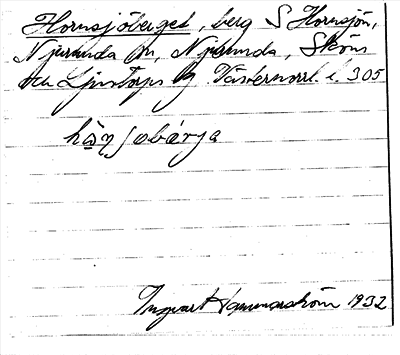 Hornsjöberget, berg S Hornsjön,
Njurunda sn, Njurunda, Sköns
och Ljustorps tg Västernorrl. l. 305
Ingvar Hammarström 1932